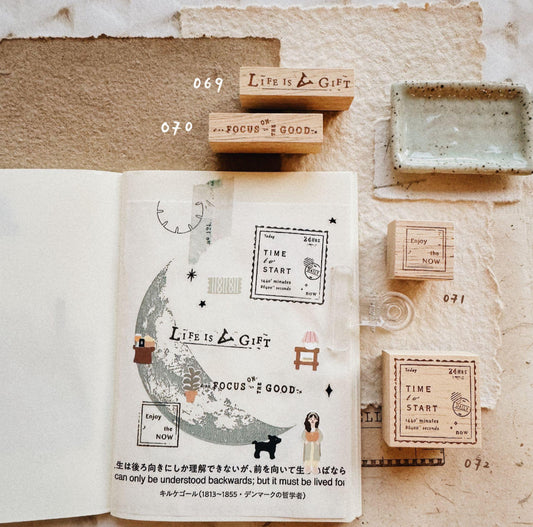 069
LIFE IS A GIFT
070
FOCUS ON THE GOOD
Today 24HRS
TIME
to
START
1440 minutes
86400 seconds
now
LIFE IS A GIFT
FOCUS ON THE GOOD
Enjoy
the
NOW
生は後ろ向きにしか理解できないが、前を向いて生
ばなら
can only be understood backwards; but it must be lived for
キルケゴール(1813~1855・デンマークの哲学者)
Enjoy
the
NOW
071
Today 24HRS
TIME
to
START
1440 minutes
86400 seconds
now
072